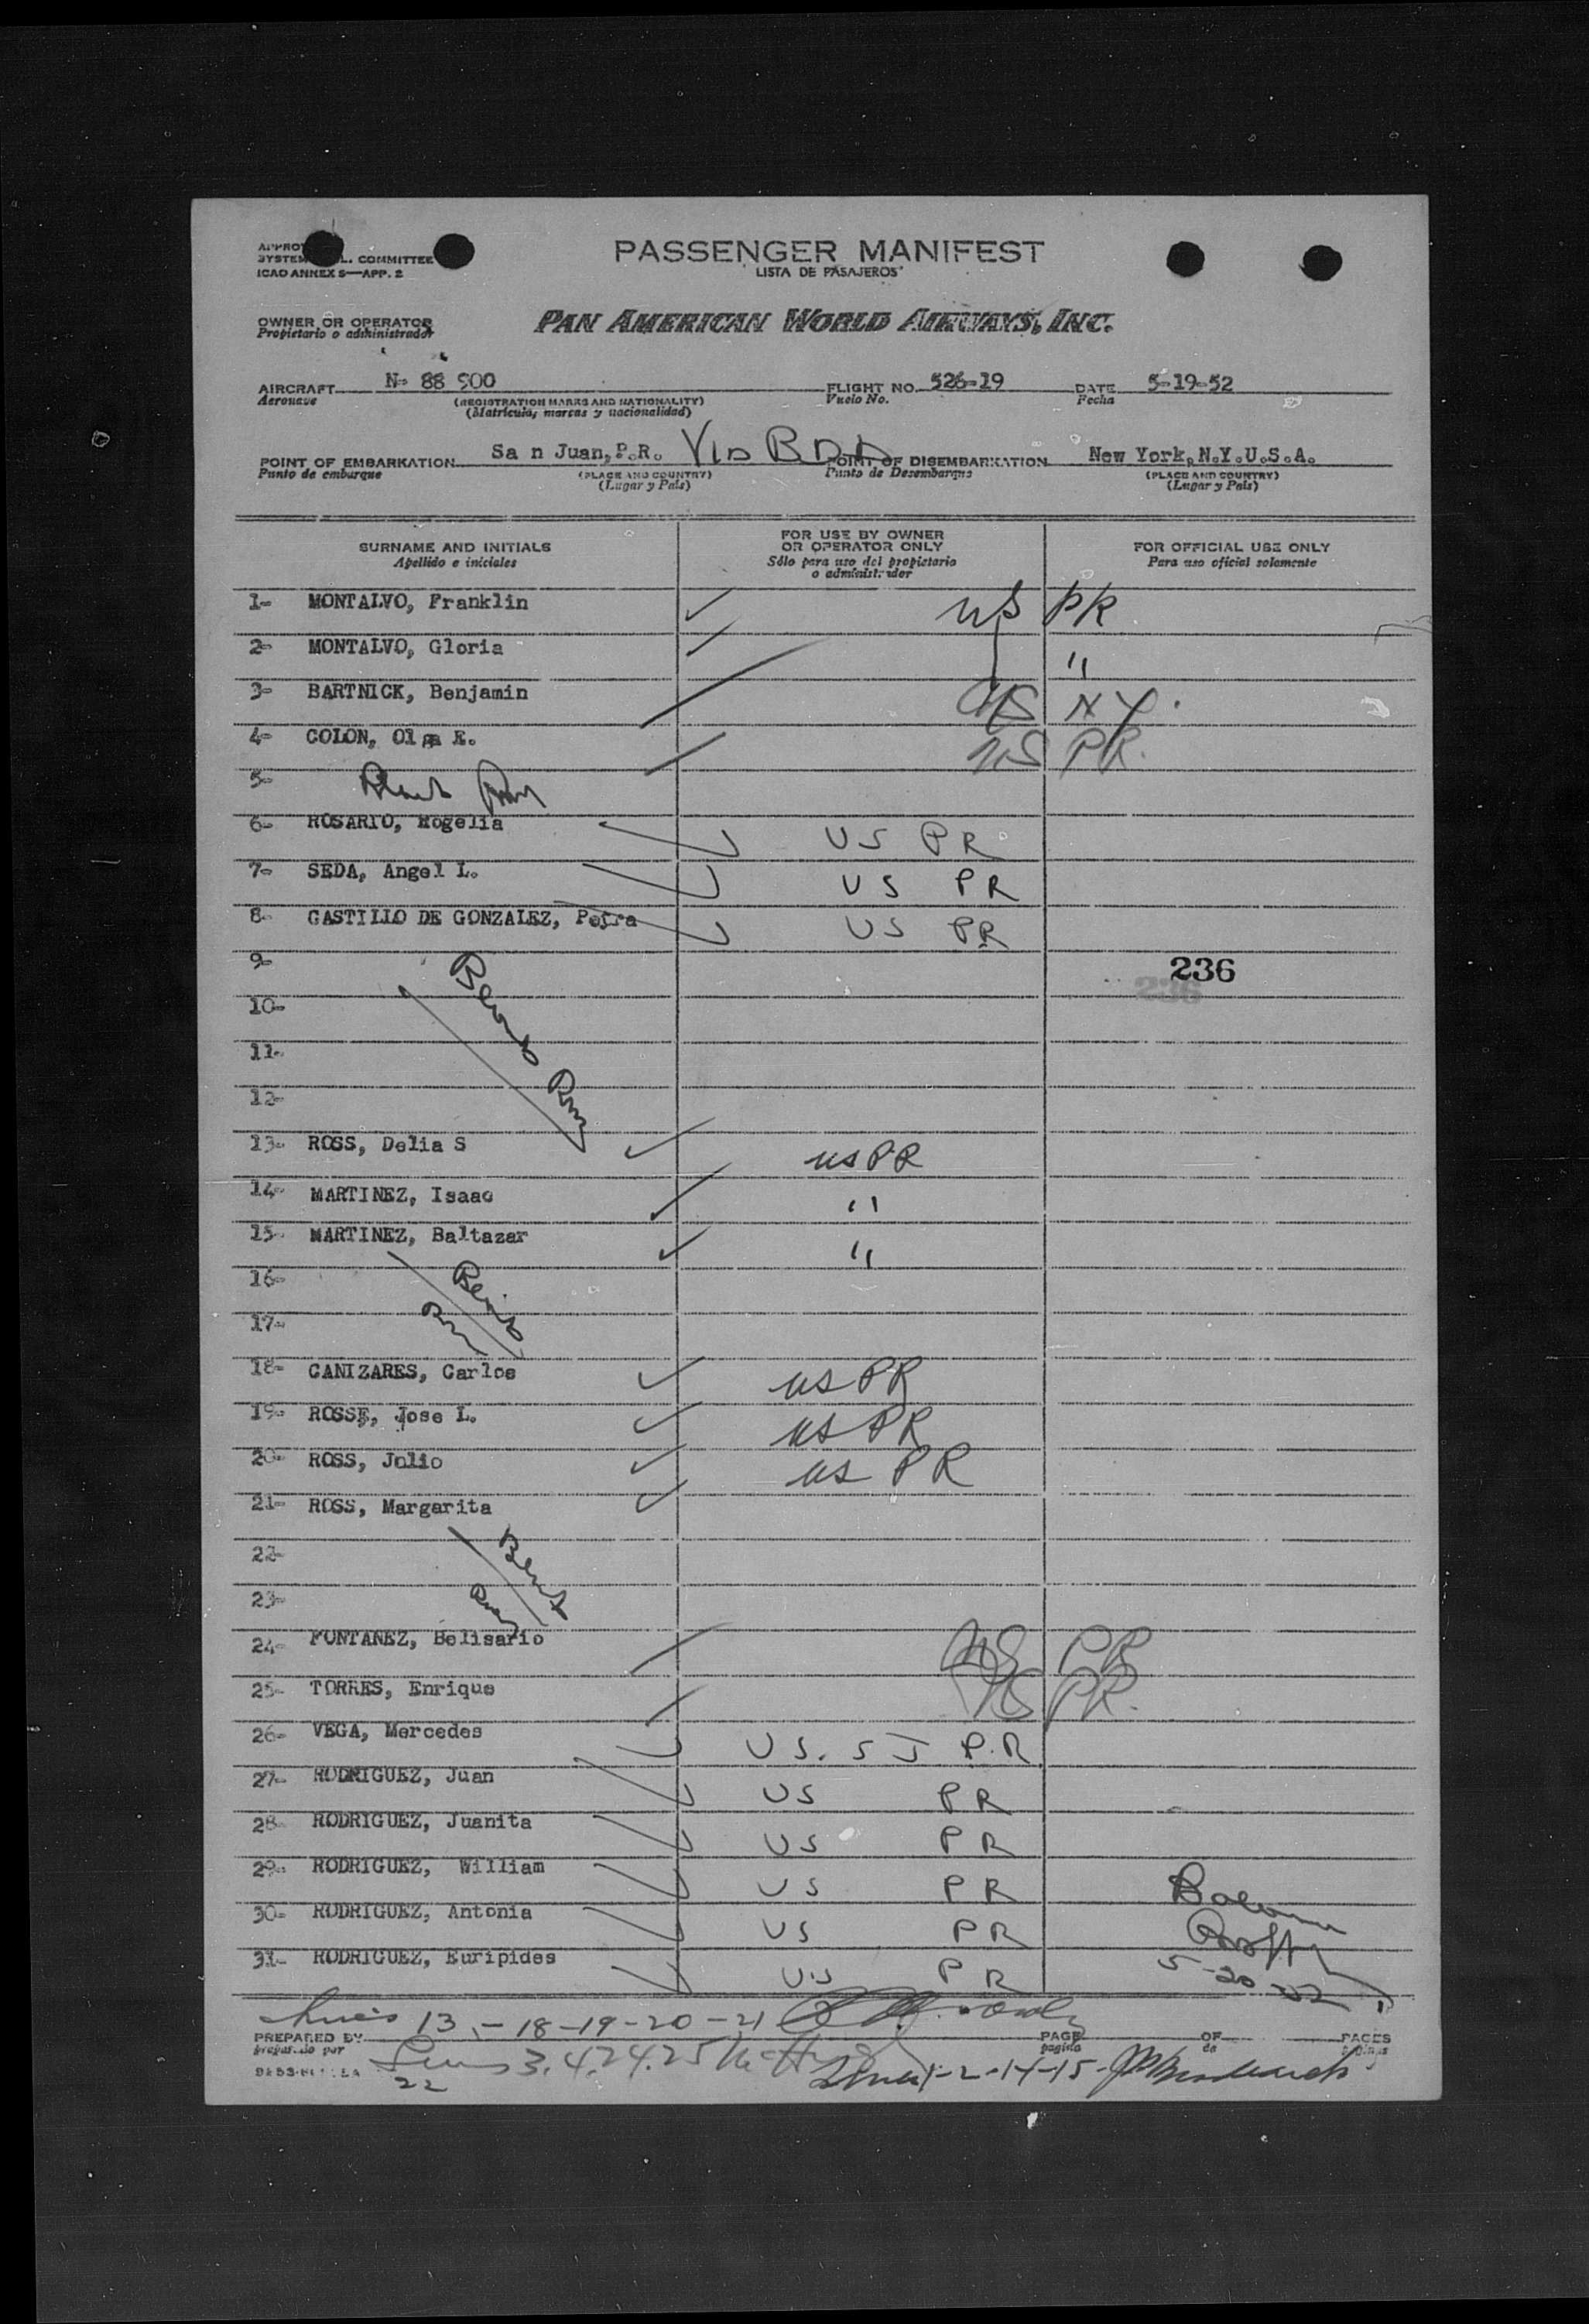 PASSENGER MANIFEST
LISTA DE PASAJEROS
L. COMMITTEE
ICAO ANNEX 9—APP. 2
OWNER OR OPERATOR
Propietario o administrador
PAN AMERICAN WORLD AIRWAYS, INC.
AIRCRAFT N- 88 900 FLIGHT NO. 526-19 DATE 5-19-52
Aeronave (REGISTRATION MARKS AND NATIONALITY) Vuelo No. Fecha
(Matricula, marcas y nacionalidad)
POINT OF EMBARKATION Sa n Juan, P.R. Via BDA POINT OF DISEMBARKATION New York, N.Y.U.S.A.
Punto de embarque (PLACE AND COUNTRY) Punto de Desembarque (PLACE AND COUNTRY)
(Lugar y País) (Lugar y País)
SURNAME AND INITIALS FOR USE BY OWNER OR OPERATOR ONLY FOR OFFICIAL USE ONLY
Apellido e iniciales Sólo para uso del propietario o administrador Para uso oficial solamente
1- MONTALVO, Franklin US PR
2- MONTALVO, Gloria "
3- BARTNICK, Benjamin US NY.
4- COLON, Olga E. US PR.
5-
6- ROSARIO, Rogelia US PR
7- SEDA, Angel L. US PR
8- CASTILLO DE GONZALEZ, Petra US PR
9- 236
10-
11-
12-
13- ROSS, Delia S US PR
14- MARTINEZ, Isaac "
15- MARTINEZ, Baltazar "
16-
17-
18- CANIZARES, Carlos US PR
19- ROSSE, Jose L. US PR
20- ROSS, Julio US PR
21- ROSS, Margarita
22-
23-
24- FONTANEZ, Belisario US PR
25- TORRES, Enrique US PR.
26- VEGA, Mercedes US. SJ P.R
27- RODRIGUEZ, Juan US PR
28- RODRIGUEZ, Juanita US PR
29- RODRIGUEZ, William US PR
30- RODRIGUEZ, Antonia US PR
31- RODRIGUEZ, Euripides US PR
5-20-52
13-18-19-20-21
PREPARED BY PAGE OF PAGES
preparado por pagina de páginas
Lines 3.4.24.25
22
Lines 1-2-14-15-